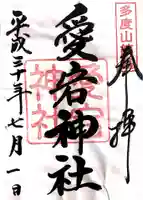 多度山
奉拝
愛宕神社
愛宕
神社
平成三十年七月一日